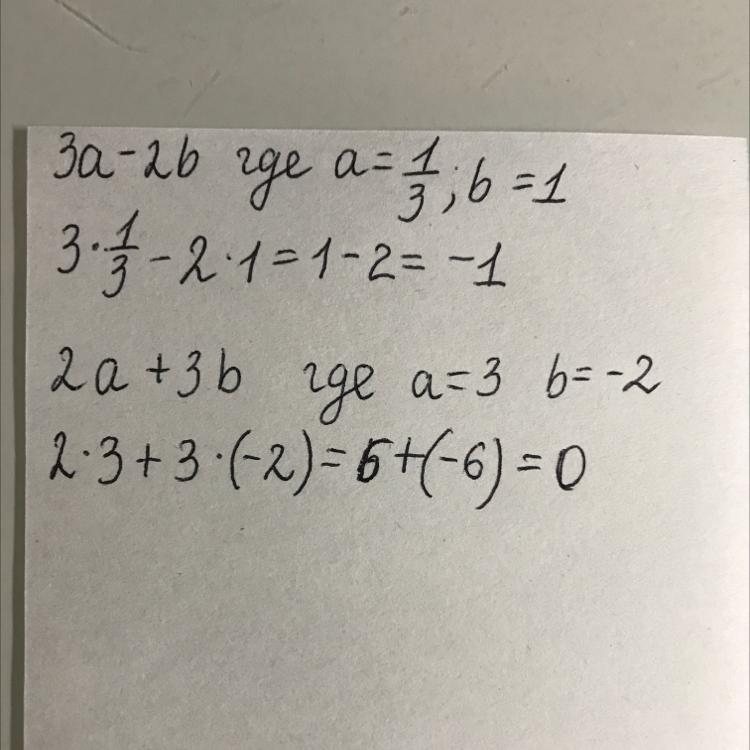 3a-2b где a=1/3; b=1
3·1/3-2·1=1-2=-1
2a+3b где a=3 b=-2
2·3+3·(-2)=6+(-6)=0